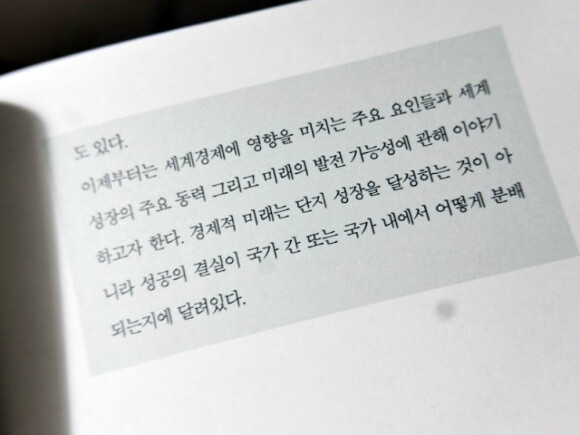 도 있다.
이제부터는 세계경제에 영향을 미치는 주요 요인들과 세계
성장의 주요 동력 그리고 미래의 발전 가능성에 관해 이야기
하고자 한다. 경제적 미래는 단지 성장을 달성하는 것이 아
니라 성공의 결실이 국가 간 또는 국가 내에서 어떻게 분배
되는지에 달려있다.